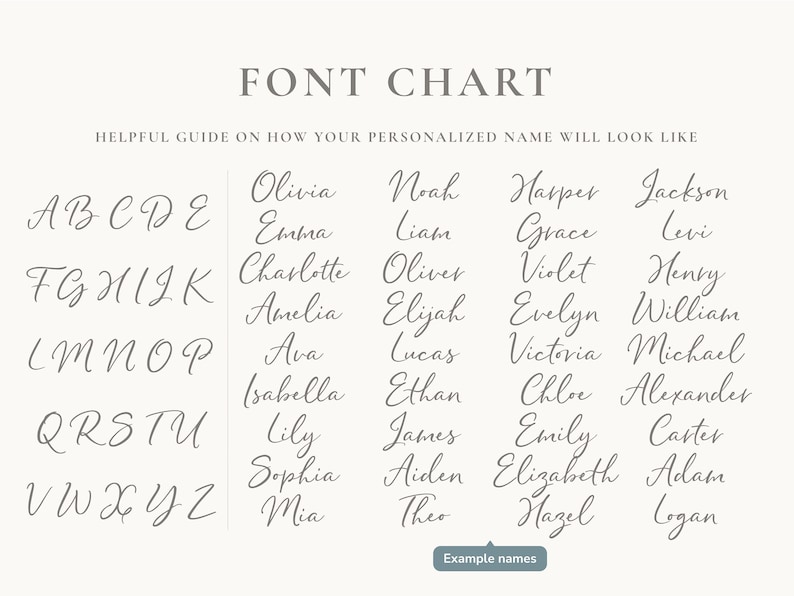 FONT CHART
HELPFUL GUIDE ON HOW YOUR PERSONALIZED NAME WILL LOOK LIKE
A B C D E
F G H I J K
L M N O P
Q R S T U
V W X Y Z
Olivia Noah Harper Jackson
Emma Liam Grace Levi
Charlotte Oliver Violet Henry
Amelia Elijah Evelyn William
Ava Lucas Victoria Michael
Isabella Ethan Chloe Alexander
Lily James Emily Carter
Sophia Aiden Elizabeth Adam
Mia Theo Hazel Logan
Example names